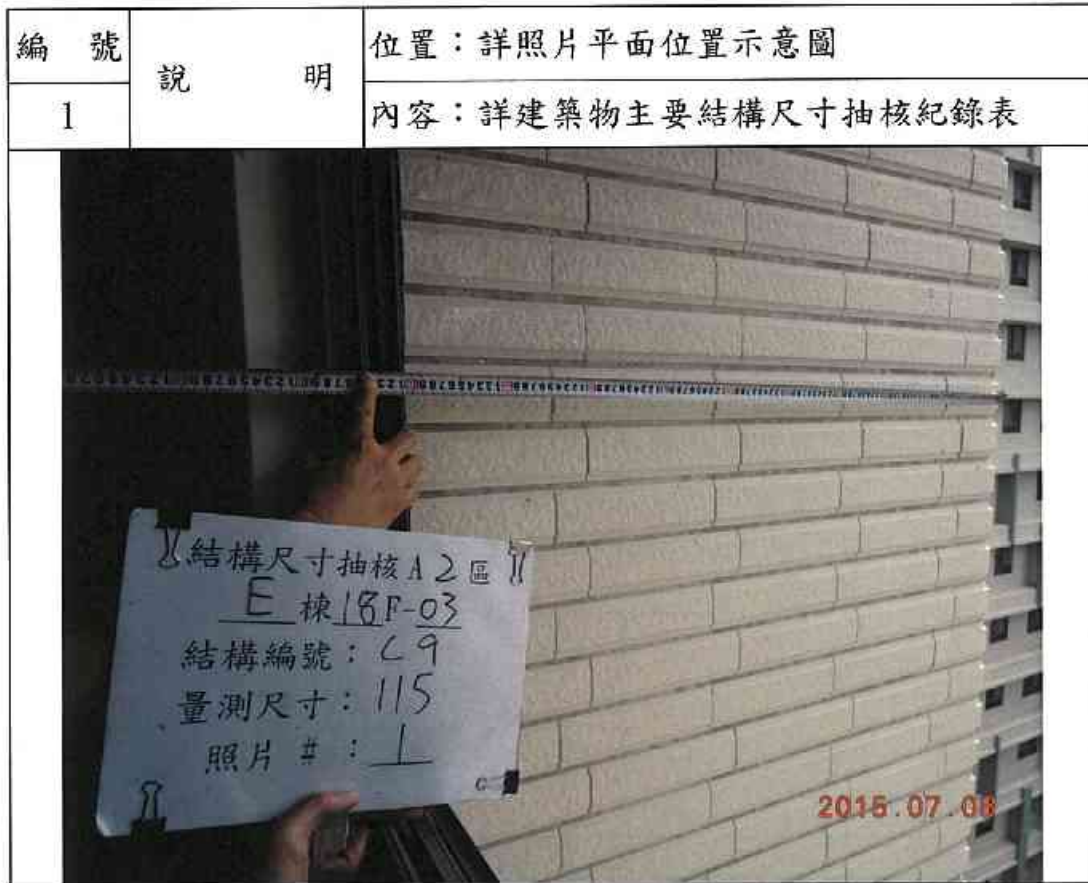 編 號
說 明
位置：詳照片平面位置示意圖
1
內容：詳建築物主要結構尺寸抽核紀錄表
結構尺寸抽核A2區
E棟18F-03
結構編號：C9
量測尺寸：115
照片#：1
2015.07.08